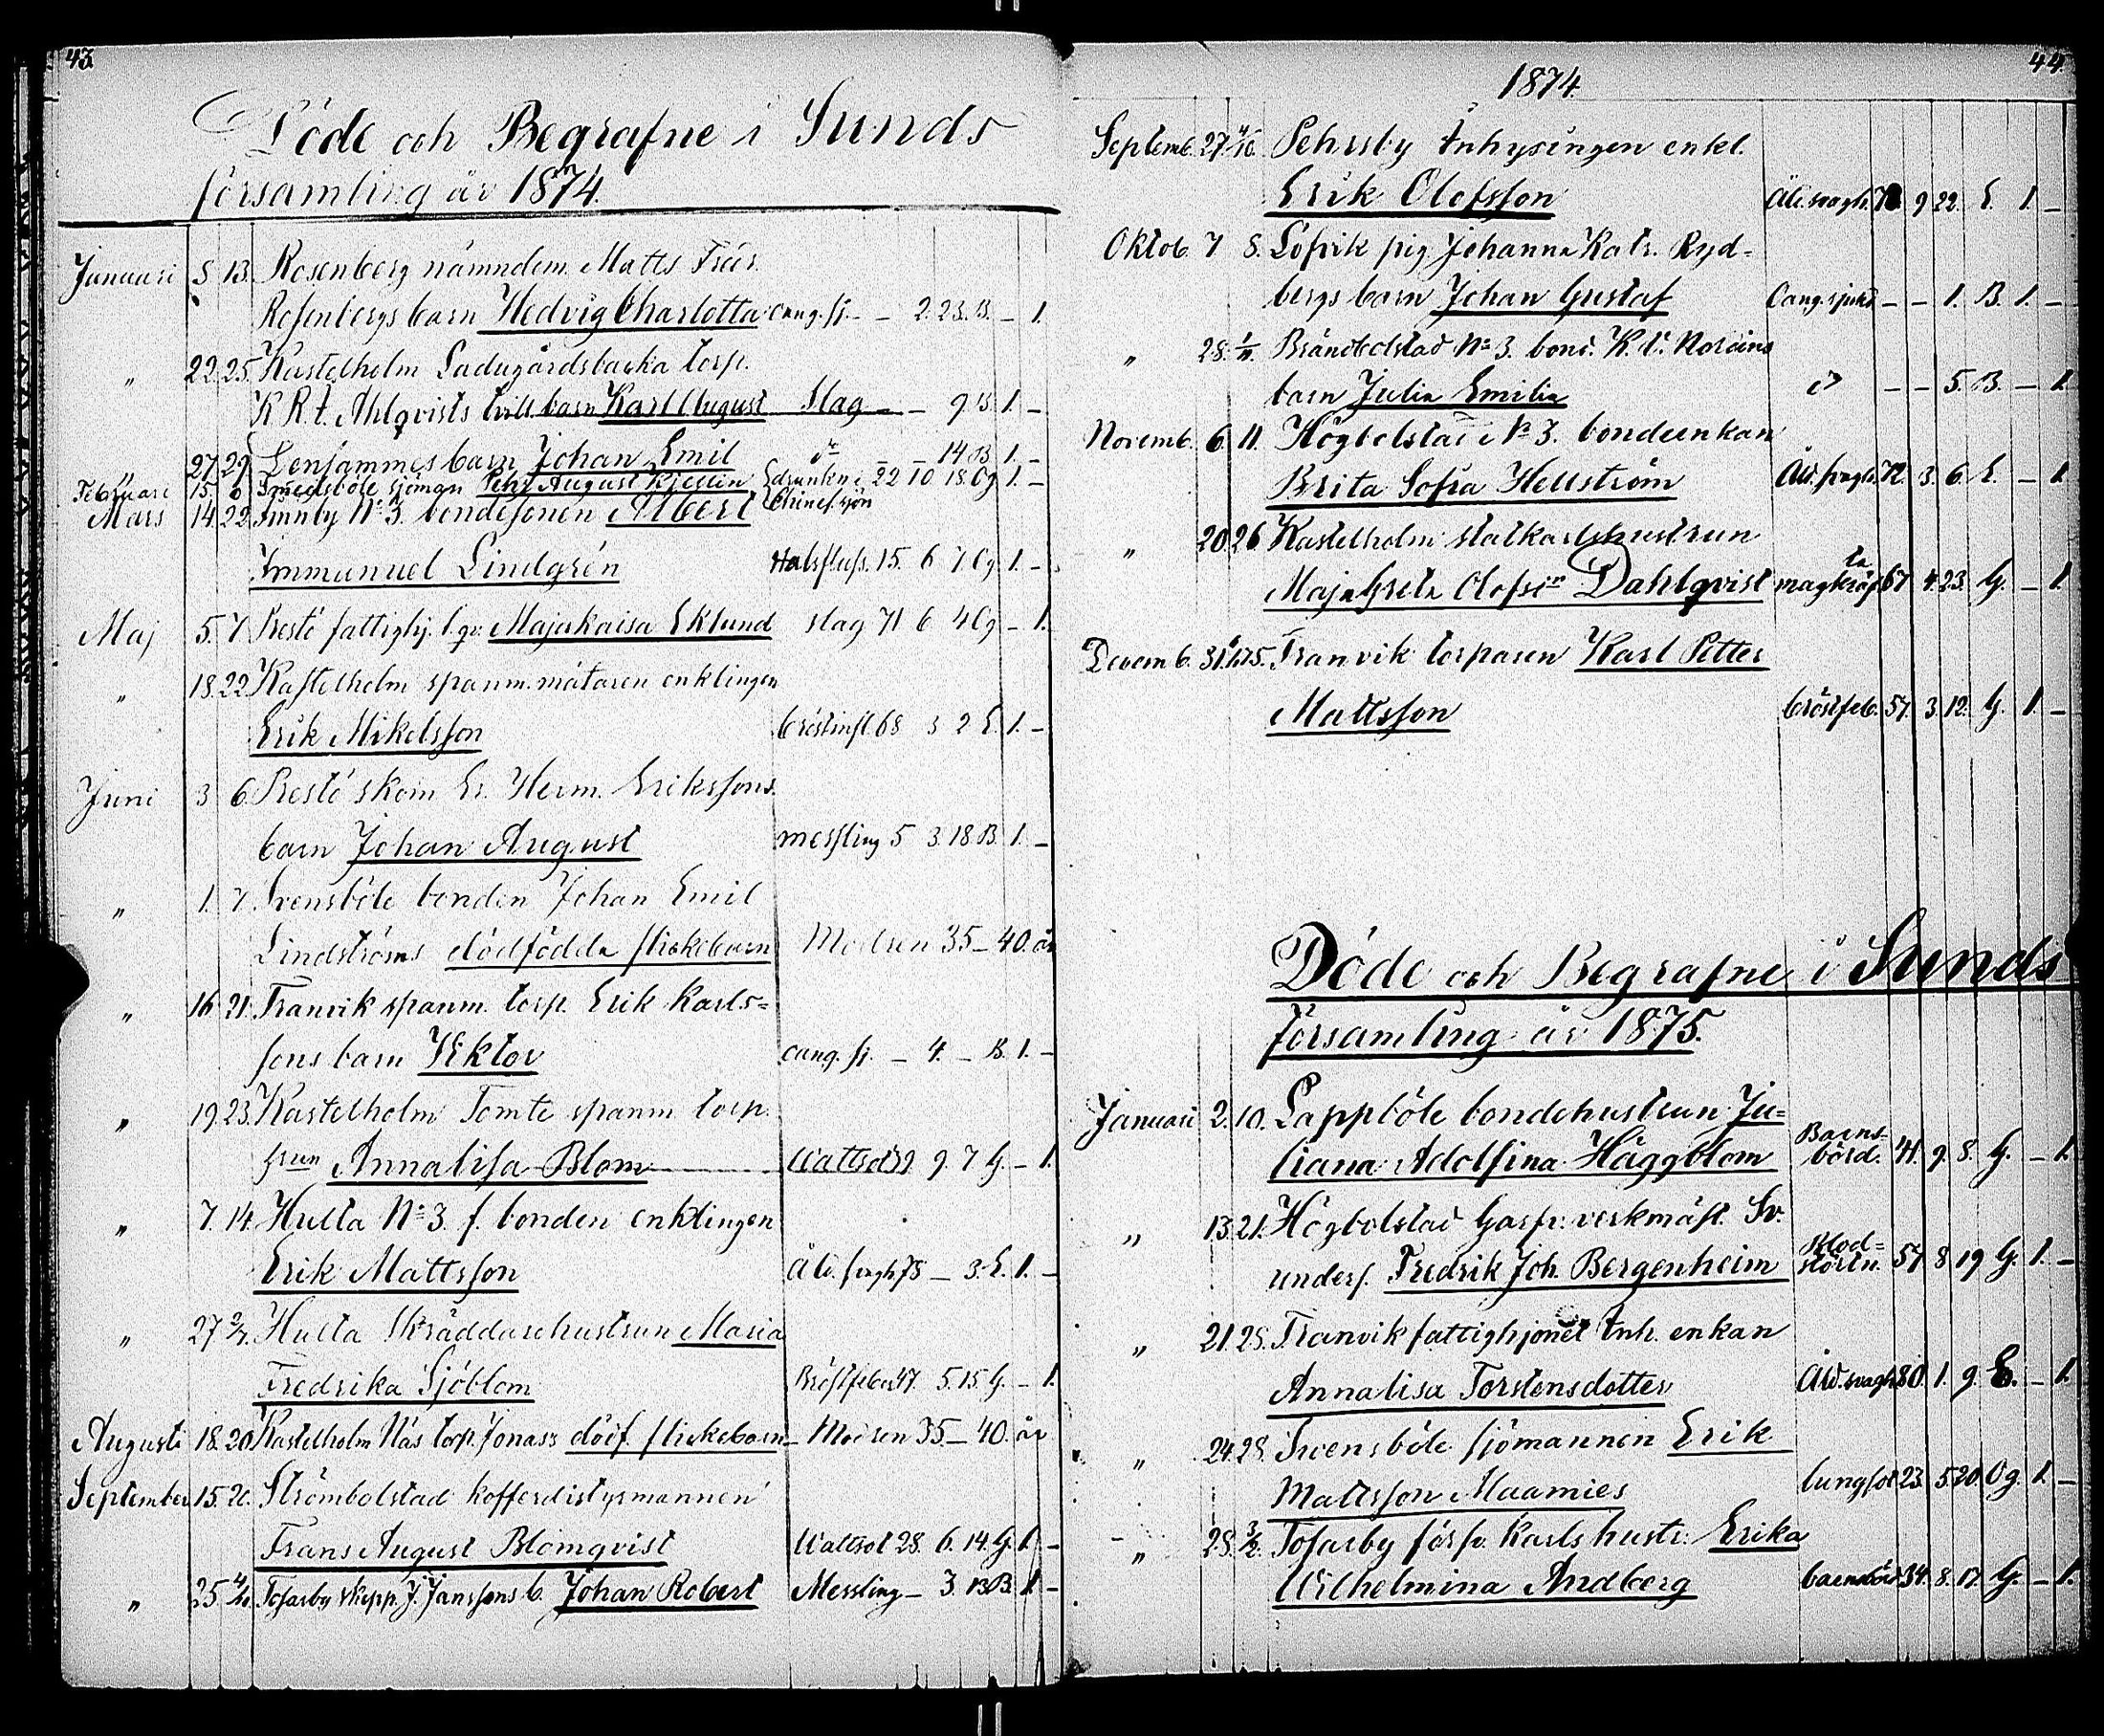 43.
Döde och Begrafne i Sunds
församling år 1874.
Januari 8 13. Rosenberg nämndem. Matts Fredr.
Rosenbergs barn Hedvig Charlotta oang. sj. – – 2. 23. B. – 1.
" 22. 25. Kastelholm Ladugårdsbacka torp.
K. R. t. Ahlqvists tvill. barn Karl August Slag – – 9 B. 1. –
" 27 29. Lensjammes barn Johan Emil d:o – – 14 B 1. –
Februari 15. Smedsböle sjöman Pehr August Kjellin drunkn. i 22 10 18. Og 1. –
Chines. sjön
Mars 14. 22. Finnby N:o 3. bondesonen Albert
Immanuel Lindgrén Halsfluss. 15. 6 7 Og 1. –
Maj 5. 7. Prestö fattighj. l. qv. Majakaisa Eklund slag 71 6 4 Og – 1.
" 18. 22. Kastelholm spanm. mätaren enklingen
Erik Mikelsson bröstinfl. 68 3 2 E. 1. –
Juni 3 6. Prestö skom Er. Herm. Erikssons
barn Johan August messling 5 3. 18. B. 1. –
" 1. 7. Svensböle bonden Johan Emil
Lindströms dödfödda flickebarn Modren 35 – 40. år
" 16 21. Tranvik spanm. torp. Erik Karls=
sons barn Viktor oang. sj. – 4. – B. 1. –
" 19. 23. Kastelholm Tomte spanm torp.
hrun Annalisa Blom Wattsot 39 9. 7 G. – 1.
" 7. 14. Hulta N:o 3. f. bonden enklingen
Erik Mattsson Åld. svagh. 75 – 3. E. 1. –
" 27 2/7. Hulta Skräddarehustrun Maria
Fredrika Sjöblom Bröstfeber 47. 5. 15. G. – 1.
Augusti 18. 20. Kastelholm Näs torp. Jonass dödf. flickebarn – Modren 35. – 40. år
September 15. 20. Strömbolstad kofferdistyrmannen
Frans August Blomqvist Wattsot 28. 6. 14. G. 1. –
" 25. 4/10. Tosarby skepp. J. Janssons b. Johan Robert Messling – 3 13. B. 1. –
44.
1874.
Septemb. 27. 4/10. Pehrsby Inhysingen enkl.
Erik Olofsson Åld. svagh. 9 22. E. 1. –
Oktob. 7 8. Löfvik pig. Johanna Katr. Ryd=
bergs barn Johan Gustaf Oang. sjukd – – 1. B. 1. –
" 28. 1/11. Brändbolstad N:o 3. bond. K. V. Noréns
barn Julia Emilia d:o – – 5. B. – 1.
Novemb. 6. 11. Högbolstad N:o 3. bondeenkan
Brita Sofia Hellström Åld. svagh. 72. 3. 6. E. – 1.
" 20. 26. Kastelholm statkarlshustrun
Maja Greta Olofsd:r Dahlqvist magkräfta 67 4. 23. G. – 1.
Decemb. 31. 6/1 75. Tranvik torparen Karl Petter
Mattsson bröstfeb. 57. 3. 12. G. 1. –
Döde och Begrafne i Sunds
församling år 1875.
Januari 2. 10. Lappböle bondehustrun Ju=
liana Adolfina Häggblom Barns=
börd. 41. 9. 8. G. – 1.
" 13. 21. Högbolstad Gasfv. verkmäst. Sv.
unders. Fredrik Joh. Bergenheim Blod=
störtn. 57 8 19 G. 1. –
" 21. 28. Tranvik fattighjonet Inh. enkan
Annalisa Torstensdotter Åld. svagh. 80. 1. 9. E. – 1.
" 24. 28. Svensböle sjömannen Erik
Mattsson Maamies lungsot 23. 5. 20. Og. 1. –
" 28. 3/2. Tosarby försv. Karls hustr. Erika
Wilhelmina Andberg barnsbörd 34. 8. 17. G. – 1.